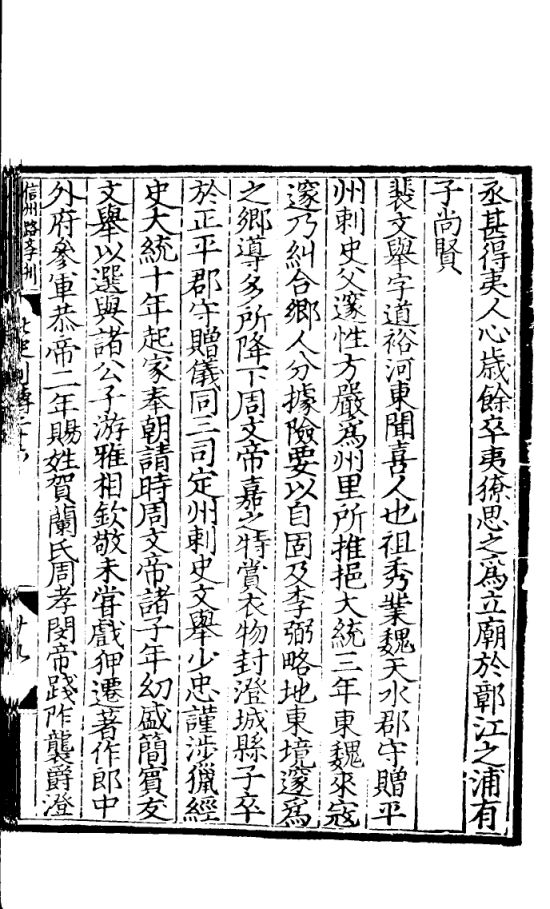 丞甚得夷人心歲餘卒夷獠思之爲立廟於鄣江之浦有
子尚賢
裴文舉字道裕河東聞喜人也祖秀業魏天水郡守贈平
州刺史父邃性方嚴爲州里所推挹大統三年東魏來寇
邃乃糾合鄉人分據險要以自固及李弼略地東境邃爲
之鄉導多所降下周文帝嘉之特賞衣物封澄城縣子卒
於正平郡守贈儀同三司定州刺史文舉少忠謹涉獵經
史大統十年起家奉朝請時周文帝諸子年幼盛簡賓友
文舉以選與諸公子游雅相欽敬未甞戲狎遷著作郎中
外府參軍恭帝二年賜姓賀蘭氏周孝閔帝踐阼襲爵澄
信州路 北史列傳二十 廿九